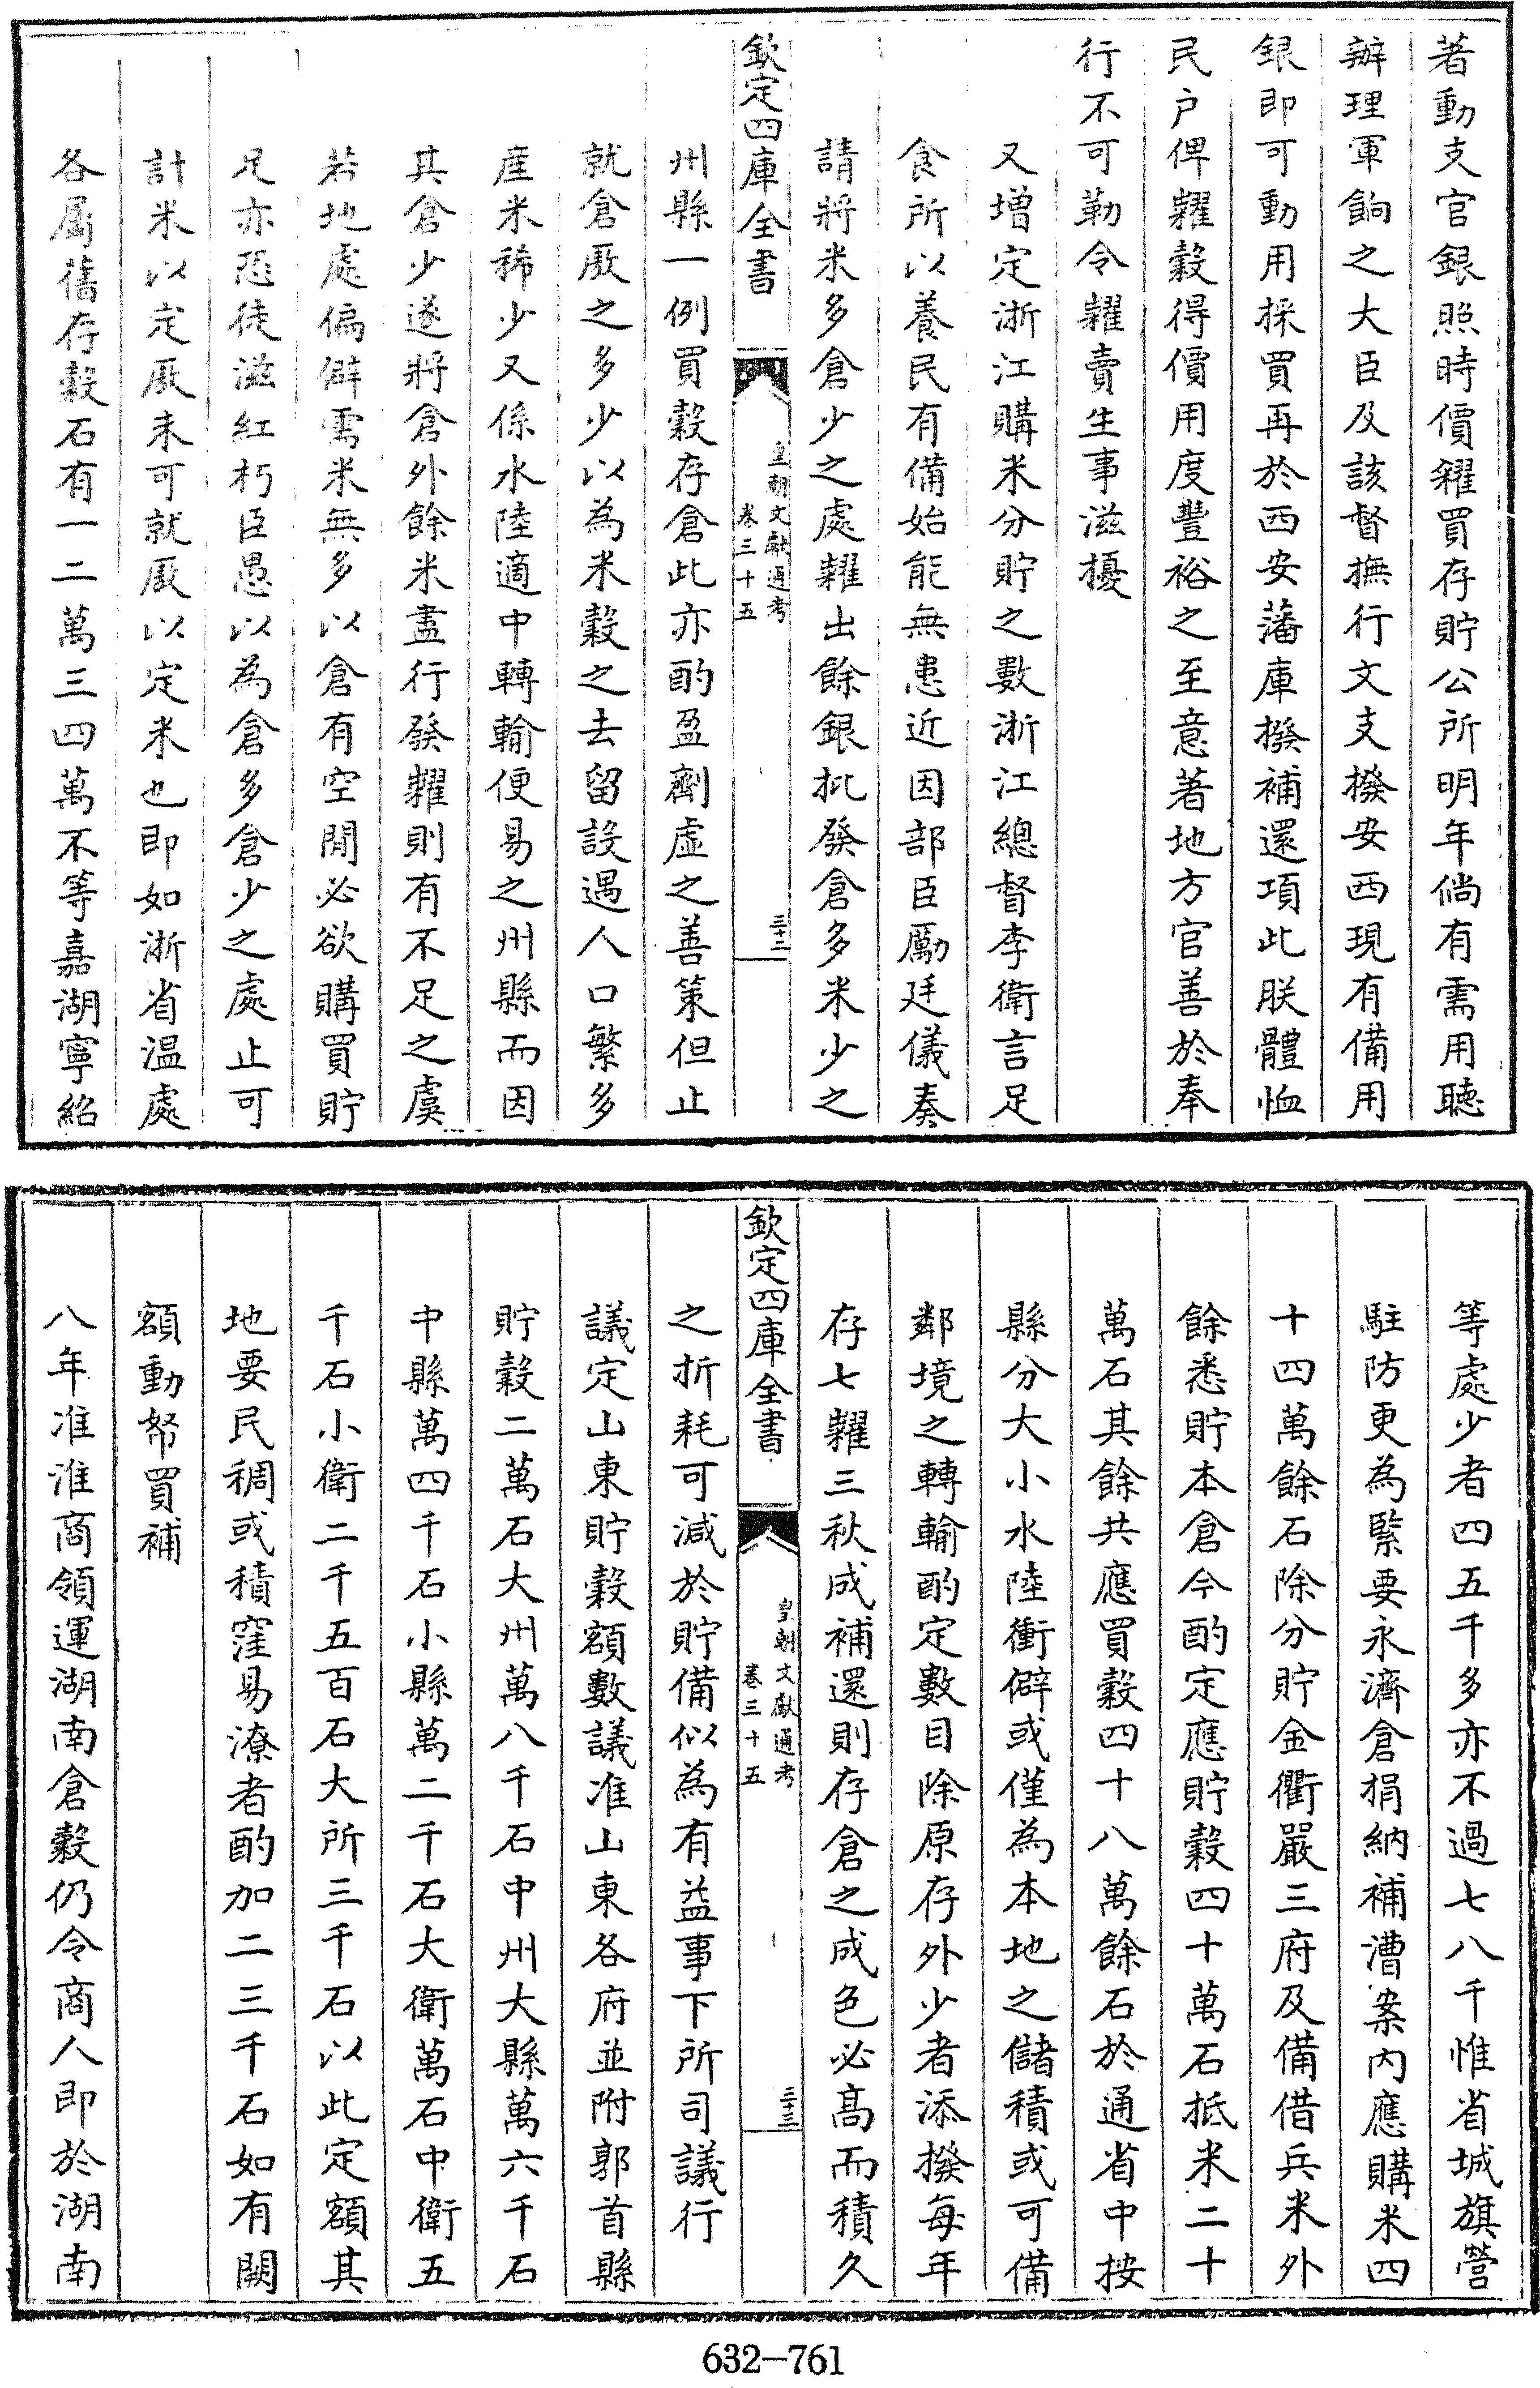 著動支官銀照時價糴買存貯公所明年倘有需用聽
辦理軍餉之大臣及該督撫行文支撥安西現有備用
銀即可動用採買再於西安藩庫撥補還項此朕體恤
民户俾糶穀得價用度豐裕之至意著地方官善於奉
行不可勒令糶賣生事滋擾
又增定浙江購米分貯之數浙江總督李衛言足
食所以養民有備始能無患近因部臣勵廷儀奏
請將米多倉少之處糶出餘銀批發倉多米少之
欽定四庫全書
皇朝文獻通考
卷三十五
三十二
州縣一例買穀存倉此亦酌盈劑虛之善策但止
就倉厫之多少以為米穀之去留設遇人口繁多
産米稀少又係水陸適中轉輸便易之州縣而因
其倉少遂將倉外餘米盡行發糶則有不足之虞
若地處偏僻需米無多以倉有空閒必欲購買貯
足亦恐徒滋紅朽臣愚以為倉多倉少之處止可
計米以定厫未可就厫以定米也即如浙省温處
各屬舊存穀石有一二萬三四萬不等嘉湖寧紹
等處少者四五千多亦不過七八千惟省城旗營
駐防更為緊要永濟倉捐納補漕案内應購米四
十四萬餘石除分貯金衢嚴三府及備借兵米外
餘悉貯本倉今酌定應貯穀四十萬石抵米二十
萬石其餘共應買穀四十八萬餘石於通省中按
縣分大小水陸衝僻或僅為本地之儲積或可備
鄰境之轉輸酌定數目除原存外少者添撥每年
存七糶三秋成補還則存倉之成色必高而積久
欽定四庫全書
皇朝文獻通考
卷三十五
三十三
之折耗可減於貯備似為有益事下所司議行
議定山東貯穀額數議准山東各府並附郭首縣
貯穀二萬石大州萬八千石中州大縣萬六千石
中縣萬四千石小縣萬二千石大衛萬石中衛五
千石小衛二千五百石大所三千石以此定額其
地要民稠或積窪易潦者酌加二三千石如有闕
額動帑買補
八年准淮商領運湖南倉穀仍令商人即於湖南
632-761